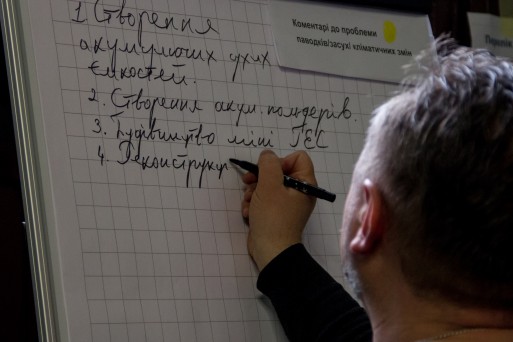 1. Створення
акумулюючих сухих
Ємкостей.
2. Створення акум. польдерів.
3. Будівництво міні ГЕС
4. Реконструкц
Коментарі до проблеми
паводків/засухі кліматичних змін